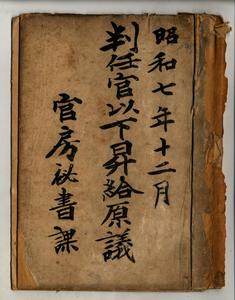 昭和七年十二月
判任官以下昇給原議
官房秘書課